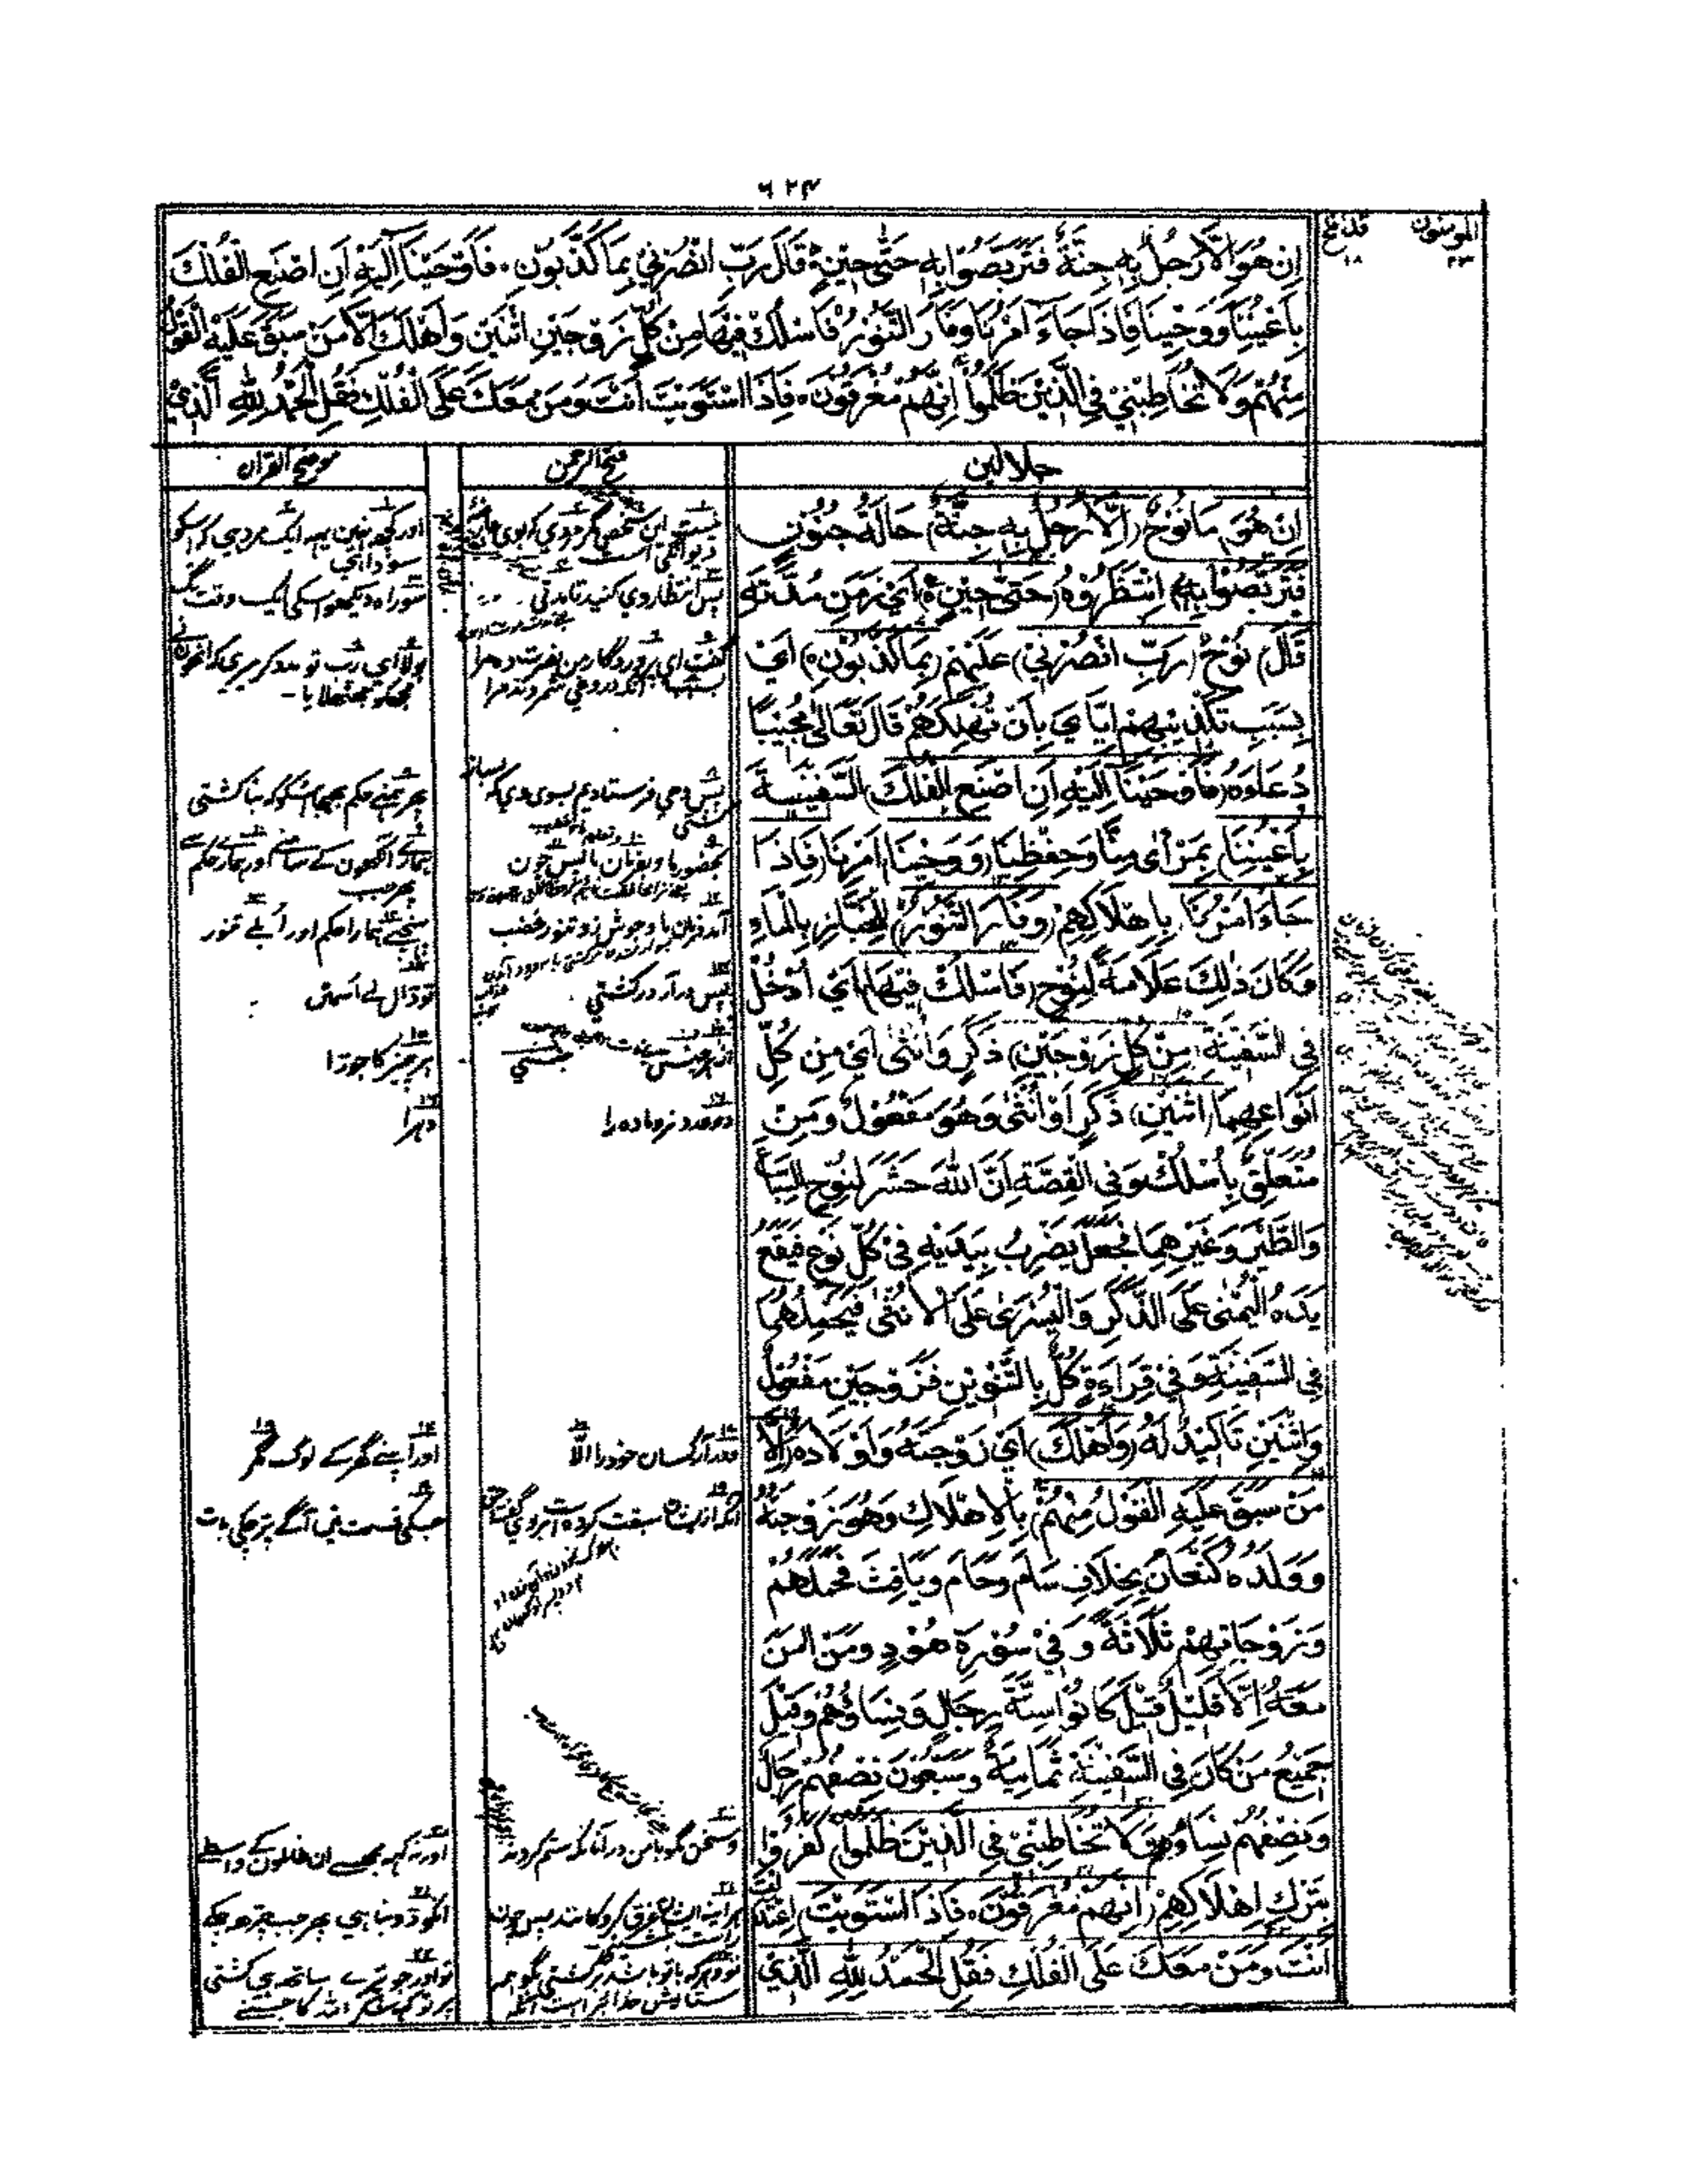 ٦٢٤
المومنون
قد افلح
٢٣
١٨
اِنْ هُوَ اِلَّا رَجُلٌ بِهٖ جِنَّةٌ فَتَرَبَّصُوْا بِهٖ حَتّٰى حِيْنٍ قَالَ رَبِّ انْصُرْنِيْ بِمَا كَذَّبُوْنِ۰ فَاَوْحَيْنَا اِلَيْهِ اَنِ اصْنَعِ الْفُلْكَ
بِاَعْيُنِنَا وَوَحْيِنَا فَاِذَا جَاءَ اَمْرُنَا وَفَارَ التَّنُّوْرُ فَاسْلُكْ فِيْهَا مِنْ كُلٍّ زَوْجَيْنِ اثْنَيْنِ وَاَهْلَكَ اِلَّا مَنْ سَبَقَ عَلَيْهِ الْقَوْلُ
مِنْهُمْ وَلَا تُخَاطِبْنِيْ فِي الَّذِيْنَ ظَلَمُوْا اِنَّهُمْ مُغْرَقُوْنَ۰ فَاِذَا اسْتَوَيْتَ اَنْتَ وَمَنْ مَعَكَ عَلَى الْفُلْكِ فَقُلِ الْحَمْدُ لِلّٰهِ الَّذِيْ
جلالين
اِنْ هُوَ مَا نُوْحٌ (اِلَّا رَجُلٌ بِهٖ جِنَّةٌ) حَالَةُ جُنُوْنٍ
فَتَرَبَّصُوْا بِهٖ) اِنْتَظِرُوْهُ (حَتّٰى حِيْنٍ) اَيْ زَمَنِ مُدَّتِهٖ
قَالَ) نُوْحٌ (رَبِّ انْصُرْنِيْ) عَلَيْهِمْ (بِمَا كَذَّبُوْنِ) اَيْ
بِسَبَبِ تَكْذِيْبِهِمْ اِيَّايَ بِاَنْ تُهْلِكَهُمْ قَالَ تَعَالٰى مُجِيْبًا
دُعَاءَهُ (فَاَوْحَيْنَا اِلَيْهِ اَنِ اصْنَعِ الْفُلْكَ) السَّفِيْنَةَ
بِاَعْيُنِنَا) بِمَرْاٰى مِنَّا وَحِفْظِنَا (وَوَحْيِنَا) اَمْرِنَا (فَاِذَا
جَاءَ اَمْرُنَا) بِاِهْلَاكِهِمْ (وَفَارَ التَّنُّوْرُ) لِلْخَبَّازِ بِالْمَاءِ
وَكَانَ ذٰلِكَ عَلَامَةً لِنُوْحٍ (فَاسْلُكْ فِيْهَا) اَيْ اَدْخِلْ
فِي السَّفِيْنَةِ (مِنْ كُلٍّ زَوْجَيْنِ) ذَكَرٍ وَاُنْثٰى اَيْ مِنْ كُلِّ
اَنْوَاعِهِمَا (اثْنَيْنِ) ذَكَرًا وَاُنْثٰى وَهُوَ مَفْعُوْلٌ وَمِنْ
مُتَعَلِّقٌ بِاُسْلُكْ وَفِي الْقِصَّةِ اَنَّ اللّٰهَ حَشَرَ لِنُوْحٍ السِّبَاعَ
وَالطَّيْرَ وَغَيْرَهُمَا فَجَعَلَ يَضْرِبُ بِيَدَيْهِ فِيْ كُلِّ نَوْعٍ فَيَقَعُ
يَدُهُ الْيُمْنٰى عَلَى الذَّكَرِ وَالْيُسْرٰى عَلَى الْاُنْثٰى فَيَحْمِلُهُمَا
فِي السَّفِيْنَةِ وَفِيْ قِرَاءَةٍ كُلٍّ بِالتَّنْوِيْنِ فَزَوْجَيْنِ مَفْعُوْلٌ
وَاثْنَيْنِ تَاْكِيْدٌ لَهُ (وَاَهْلَكَ) اَيْ زَوْجَتَهُ وَاَوْلَادَهُ (اِلَّا
مَنْ سَبَقَ عَلَيْهِ الْقَوْلُ مِنْهُمْ) بِالْاِهْلَاكِ وَهُوَ زَوْجَتُهُ
وَوَلَدُهُ كَنْعَانُ بِخِلَافِ سَامَ وَحَامَ وَيَافِثَ فَحَمَلَهُمْ
وَزَوْجَاتِهِمْ ثَلَاثَةً وَفِيْ سُوْرَةِ هُوْدٍ وَمَنْ اٰمَنَ
مَعَهُ اِلَّا قَلِيْلٌ قِيْلَ كَانُوْا سِتَّةَ رِجَالٍ وَنِسَاؤُهُمْ وَقِيْلَ
جَمِيْعُ مَنْ كَانَ فِي السَّفِيْنَةِ ثَمَانِيَةٌ وَسَبْعُوْنَ نِصْفُهُمْ رِجَالٌ
وَنِصْفُهُمْ نِسَاءٌ (وَلَا تُخَاطِبْنِيْ فِي الَّذِيْنَ ظَلَمُوْا) كَفَرُوْا
بِتَرْكِ اِهْلَاكِهِمْ (اِنَّهُمْ مُغْرَقُوْنَ۰ فَاِذَا اسْتَوَيْتَ) اِعْتَدَلْتَ
اَنْتَ وَمَنْ مَعَكَ عَلَى الْفُلْكِ فَقُلِ الْحَمْدُ لِلّٰهِ الَّذِيْ
فتح الرحمن
نیست این شخص مگر مردی که بوی
دیوانگی است
پس انتظار وی کنید تا مدتی
گفت ای پروردگار من نصرت ده مرا
بسبب آنکه دروغی شمردند مرا
پس وحی فرستادیم بسوی وی که بساز
کشتی
بحضور ما و بفرمان ما پس چون
آمد فرمان ما و بجوش زد تنور
پس درآر در کشتی
از هر جنس
دو عدد نر و ماده را
و درآر کسان خود را الّا
آنکه از ایشان سبقت کرده است بر وی
و سخن مگو با من در آنانکه ستم کردند
هر آینه ایشان غرق کردگانند پس چون
راست
تو و هر که با تو باشد بر کشتی بگو همه
ستایش خدا راست آنکه
موضح القران
اور کچھ نہین یہہ ایک مرد ہی کہ اسکو
سودا ہی
سو راہ دیکھو اسکی ایک وقت تک
بولا ای رب تو مدد کر میری کہ انہون نے
مجکو جھٹلایا -
پھر ہمنے حکم بھیجا اسکو کہ بنا کشتی
ہماری آنکھون کے سامنے اور ہمارے حکم سے
پھر جب
پہنچے ہمارا حکم اور اُبلے تنور
تو ڈال لے اسمین
ہر چیز کا جوڑا
دہرا
اور اپنے گھر کے لوگ مگر
جسکی قسمت مین آگے پڑ چکی بات
اور نہ کہہ مجھسے ان ظالمون کے واسطے
انکو ڈوبنا ہی پھر جب چڑھ چکے
تو اور جو تیرے ساتھ ہی کشتی
پر تو کہہ شکر اللہ کا جسنے